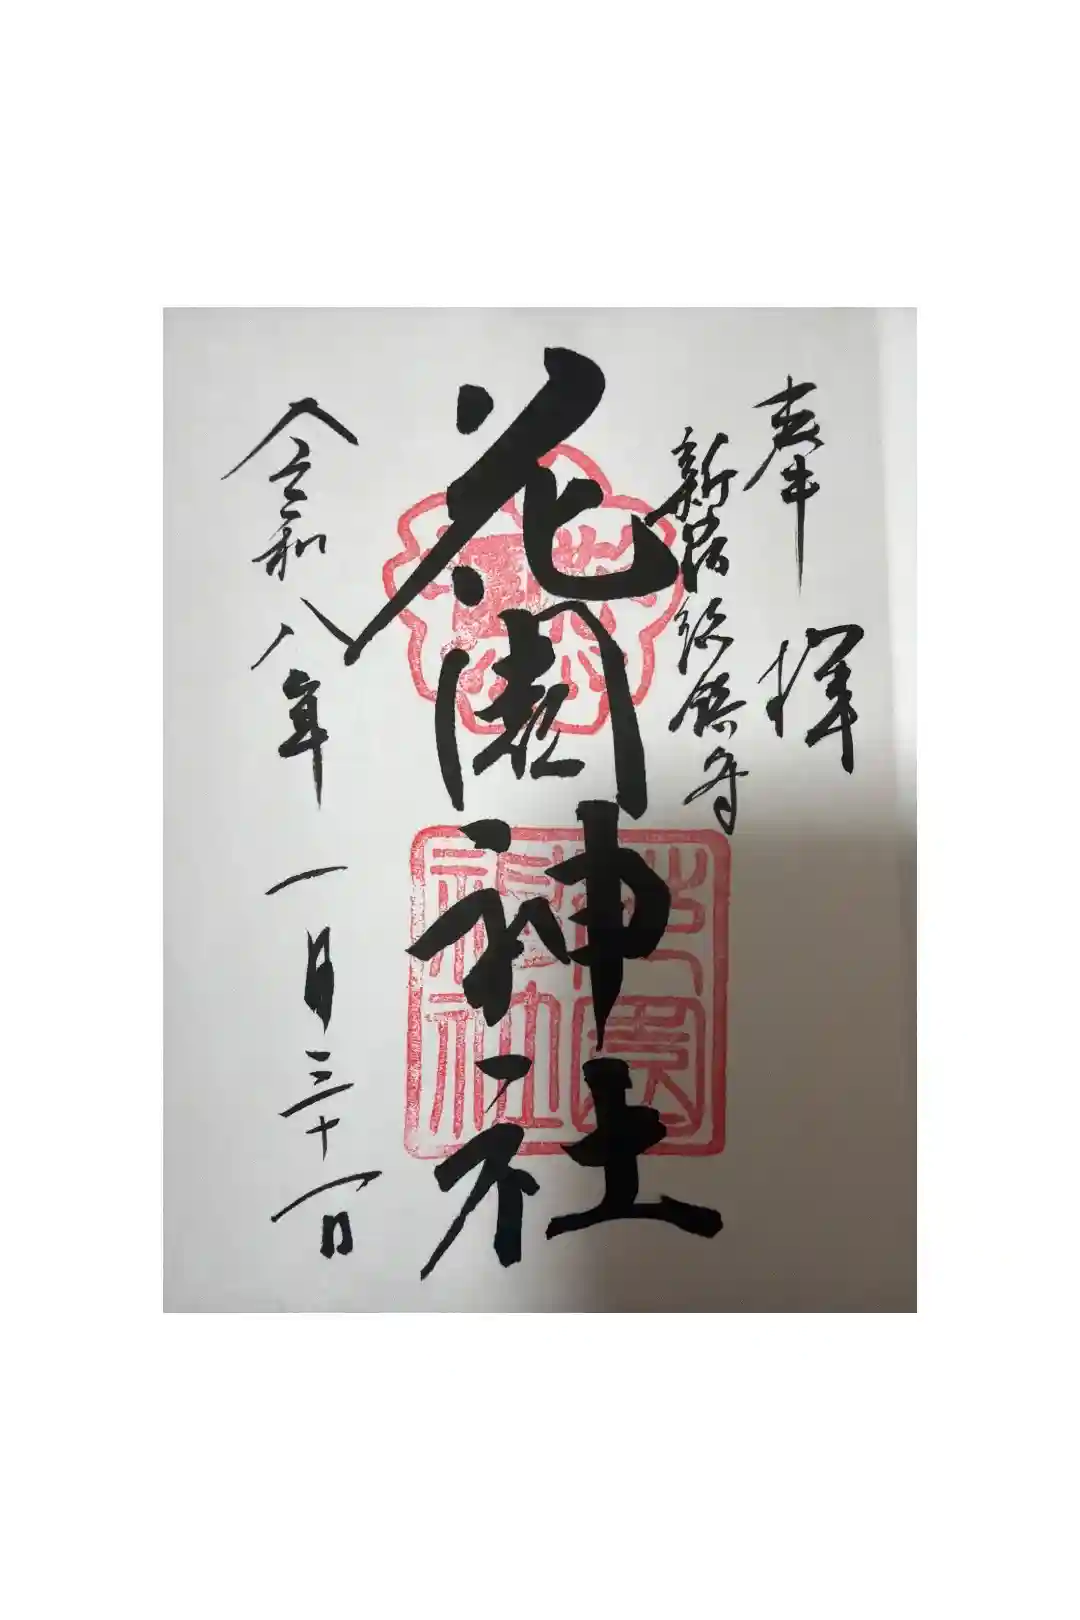 奉拝
新宿総鎮守
花園神社
令和八年一月三十一日
花園神社